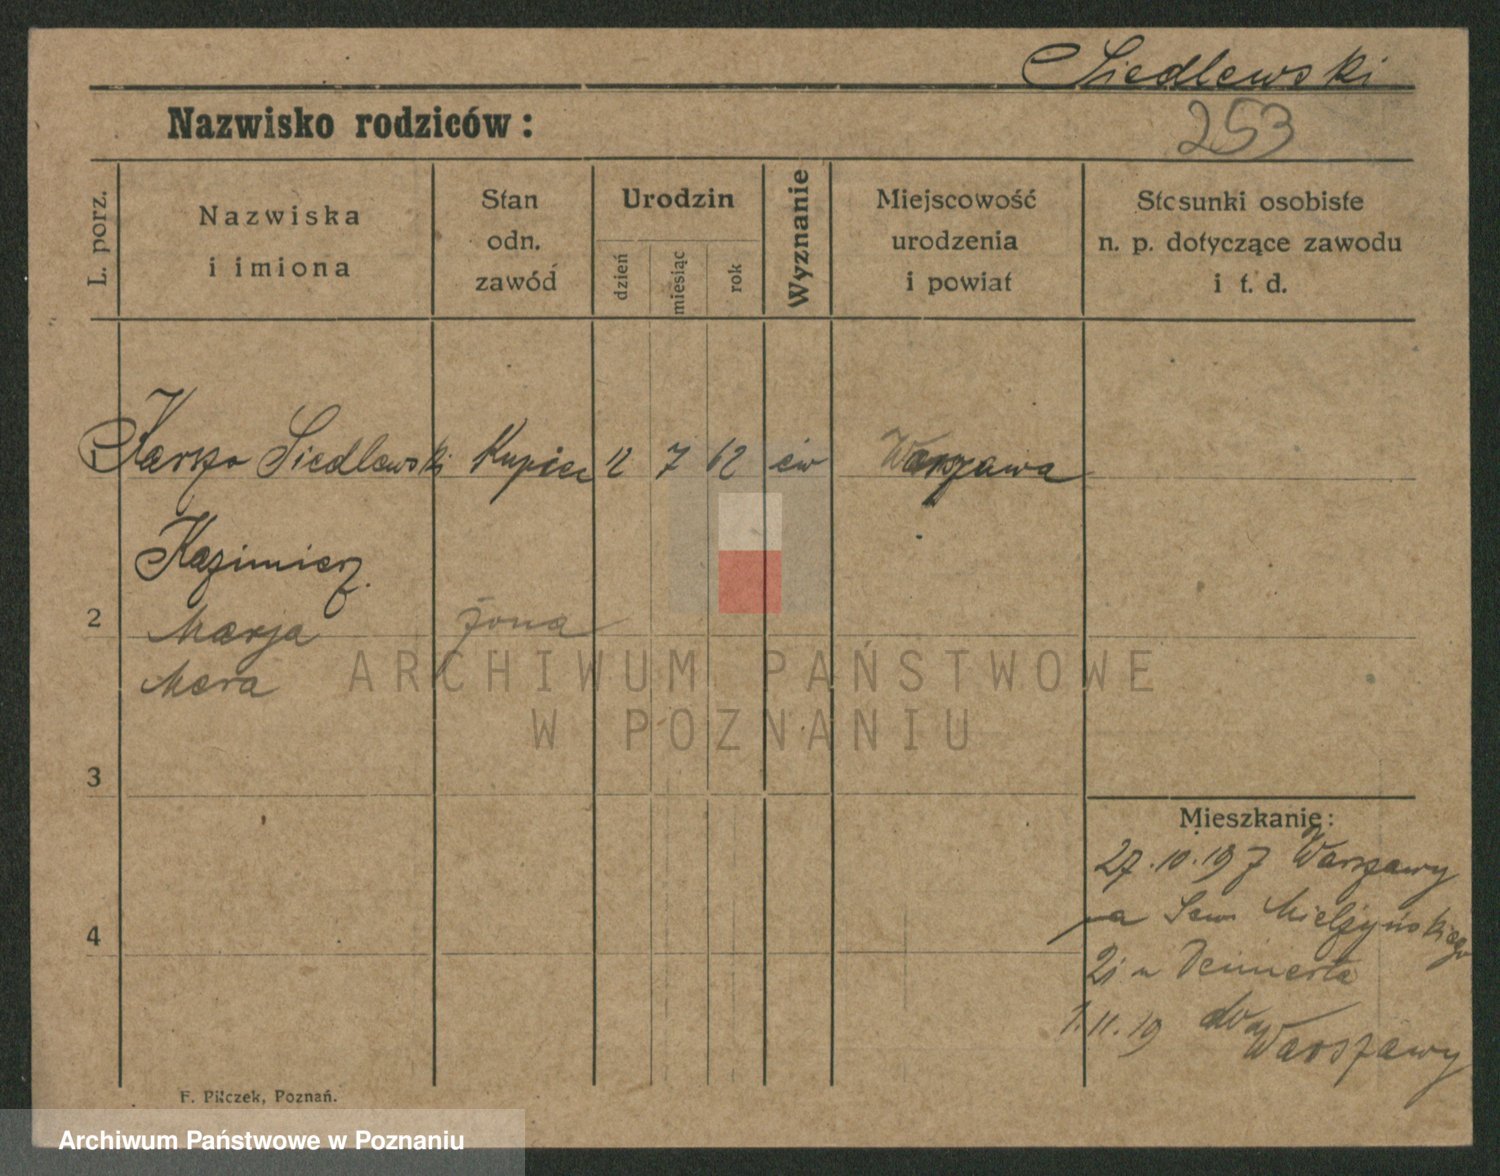 Siedlewski
Nazwisko rodziców:
253
L. porz.
Nazwiska
i imiona
Stan
odn.
zawód
Urodzin
dzień
miesiąc
rok
Wyznanie
Miejscowość
urodzenia
i powiat
Stosunki osobiste
n. p. dotyczące zawodu
i t. d.
1 Karszo Siedlewski Kupiec 12 7 62 ew Warszawa
Kazimierz.
2 Marja żona
Mara
3
4
Mieszkanie:
27.10.19 z Warszawy
na Sew Mielżyńskiego
21
1.11.19 do Warszawy
F. Pilczek, Poznań.
ARCHIWUM PAŃSTWOWE
W POZNANIU
Archiwum Państwowe w Poznaniu